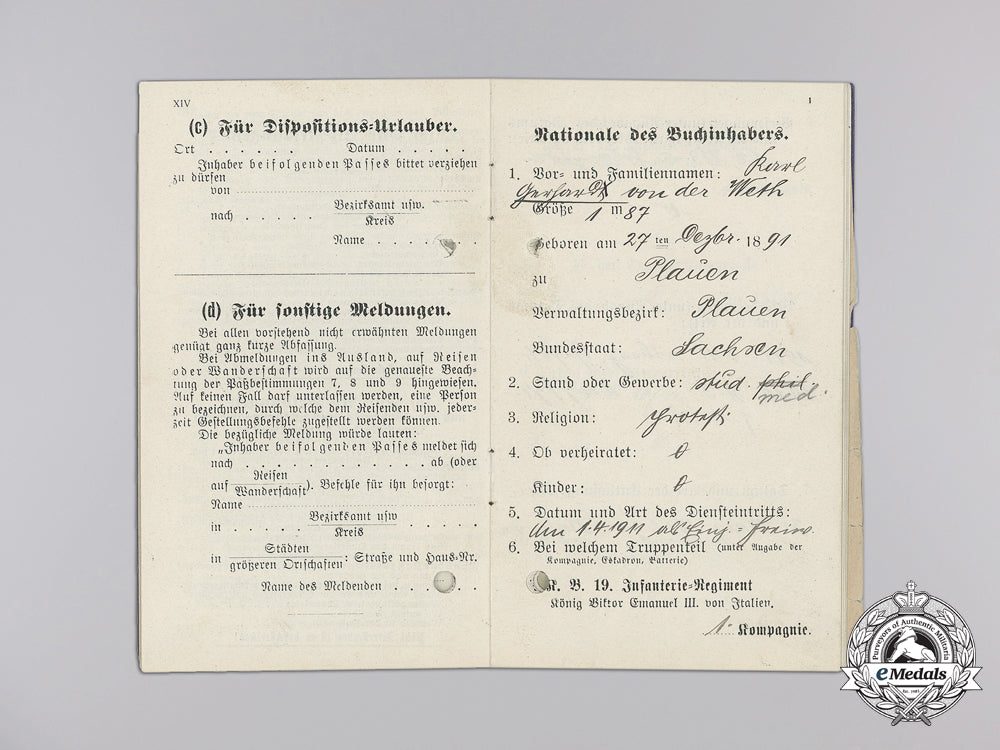 XIV
(c) Für Dispositions-Urlauber.
Ort . . . . . . Datum . . . . .
Inhaber beifolgenden Passes bittet verziehen
zu dürfen
von
nach . . . . . Bezirksamt usw.
Kreis
Name . . . .
(d) Für sonstige Meldungen.
Bei allen vorstehend nicht erwähnten Meldungen
genügt ganz kurze Abfassung.
Bei Abmeldungen ins Ausland, auf Reisen
oder Wanderschaft wird auf die genaueste Beach-
tung der Paßbestimmungen 7, 8 und 9 hingewiesen.
Auf keinen Fall darf unterlassen werden, eine Person
zu bezeichnen, durch welche dem Reisenden usw. jeder-
zeit Gestellungsbefehle zugestellt werden können.
Die bezügliche Meldung würde lauten:
„Inhaber beifolgenden Passes meldet sich
nach . . . . . . . . . . . . ab (oder
auf Reisen
Wanderschaft). Befehle für ihn besorgt:
Name
in . . . . . Bezirksamt usw
Kreis
in Städten
größeren Ortschaften: Straße und Haus-Nr.
Name des Meldenden . . . .
1
Nationale des Buchinhabers.
1. Vor- und Familiennamen: Karl
Gerhardt von der Weth
Größe 1 m 87
Geboren am 27 ten Dezbr. 1891
zu Plauen
Verwaltungsbezirk: Plauen
Bundesstaat: Sachsen
2. Stand oder Gewerbe: stud. phil.
med.
3. Religion: Protest.
4. Ob verheiratet: 0
Kinder: 0
5. Datum und Art des Diensteintritts:
Am 1.4.1911 als Einj.-Freiw.
6. Bei welchem Truppenteil (unter Angabe der
Kompagnie, Eskadron, Batterie)
K. B. 19. Infanterie-Regiment
König Viktor Emanuel III. von Italien.
1. Kompagnie.
Purveyors of Authentic Militaria
eMedals
Est. 1985